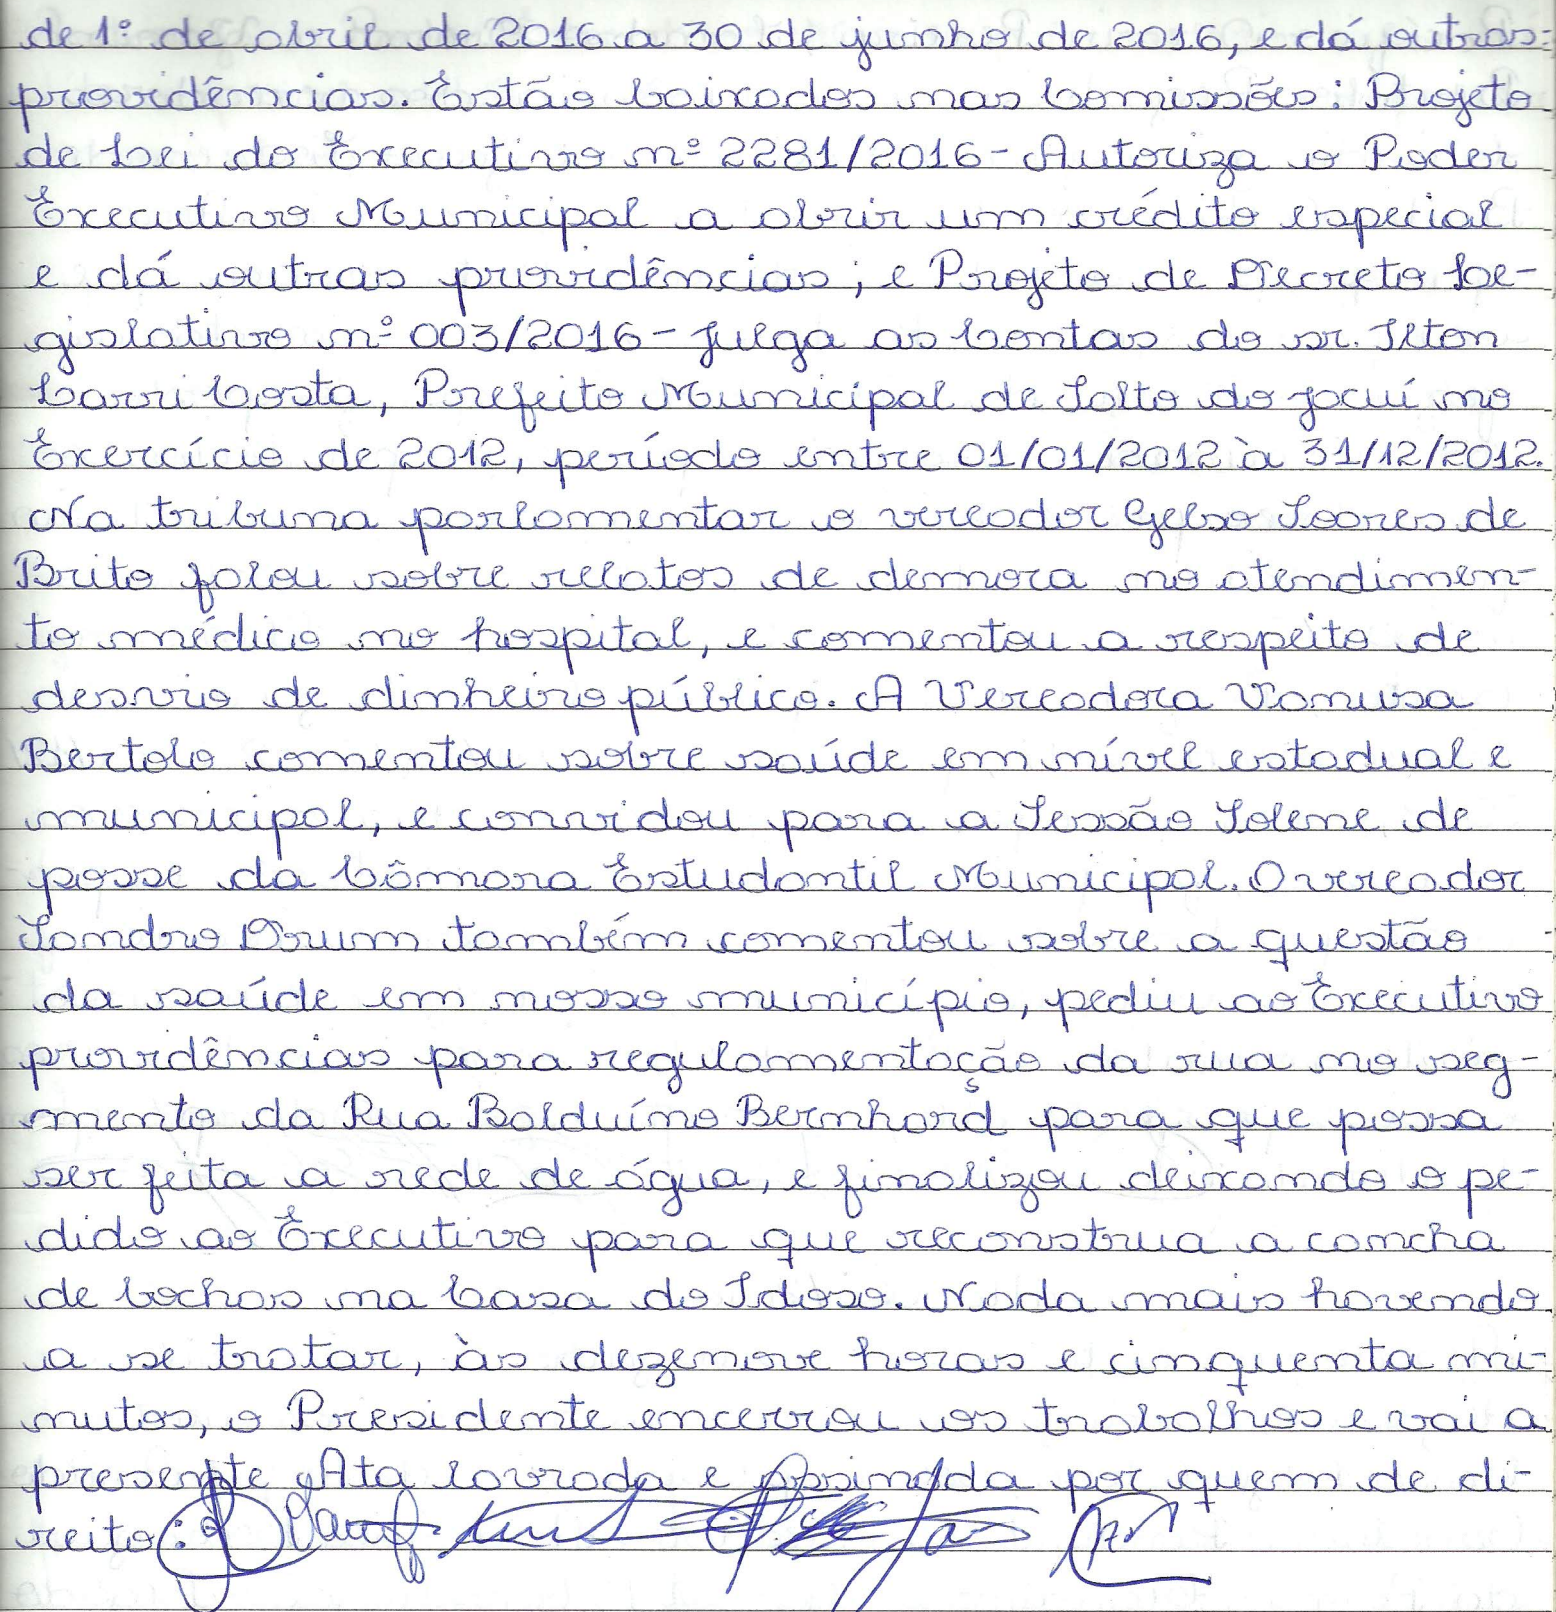 de 1º de abril de 2016 a 30 de junho de 2016, e dá outras
providências. Estão baixados nas Comissões: Projeto
de Lei do Executivo nº 2281/2016 - Autoriza o Poder
Executivo Municipal a abrir um crédito especial
e dá outras providências; e Projeto de Decreto Le-
gislativo nº 003/2016 - Julga as Contas do sr. Ilton
Carri Costa, Prefeito Municipal de Salto do Jacuí no
Exercício de 2012, período entre 01/01/2012 à 31/12/2012.
Na tribuna parlamentar o vereador Gelso Soares de
Brito falou sobre relatos de demora no atendimen-
to médico no hospital, e comentou a respeito de
desvio de dinheiro público. A Vereadora Vanusa
Bertolo comentou sobre saúde em nível estadual e
municipal, e convidou para a Sessão Solene de
posse da Câmara Estudantil Municipal. O vereador
Sandro Drum também comentou sobre a questão
da saúde em nosso município, pediu ao Executivo
providências para regulamentação da rua no seg-
mento da Rua Balduíno Bernhard para que possa
ser feita a rede de água, e finalizou deixando o pe-
dido ao Executivo para que reconstrua a cancha
de bochas na Casa do Idoso. Nada mais havendo
a se tratar, às dezenove horas e cinquenta mi-
nutos, o Presidente encerrou os trabalhos e vai a
presente Ata lavrada e assinada por quem de di-
reito: